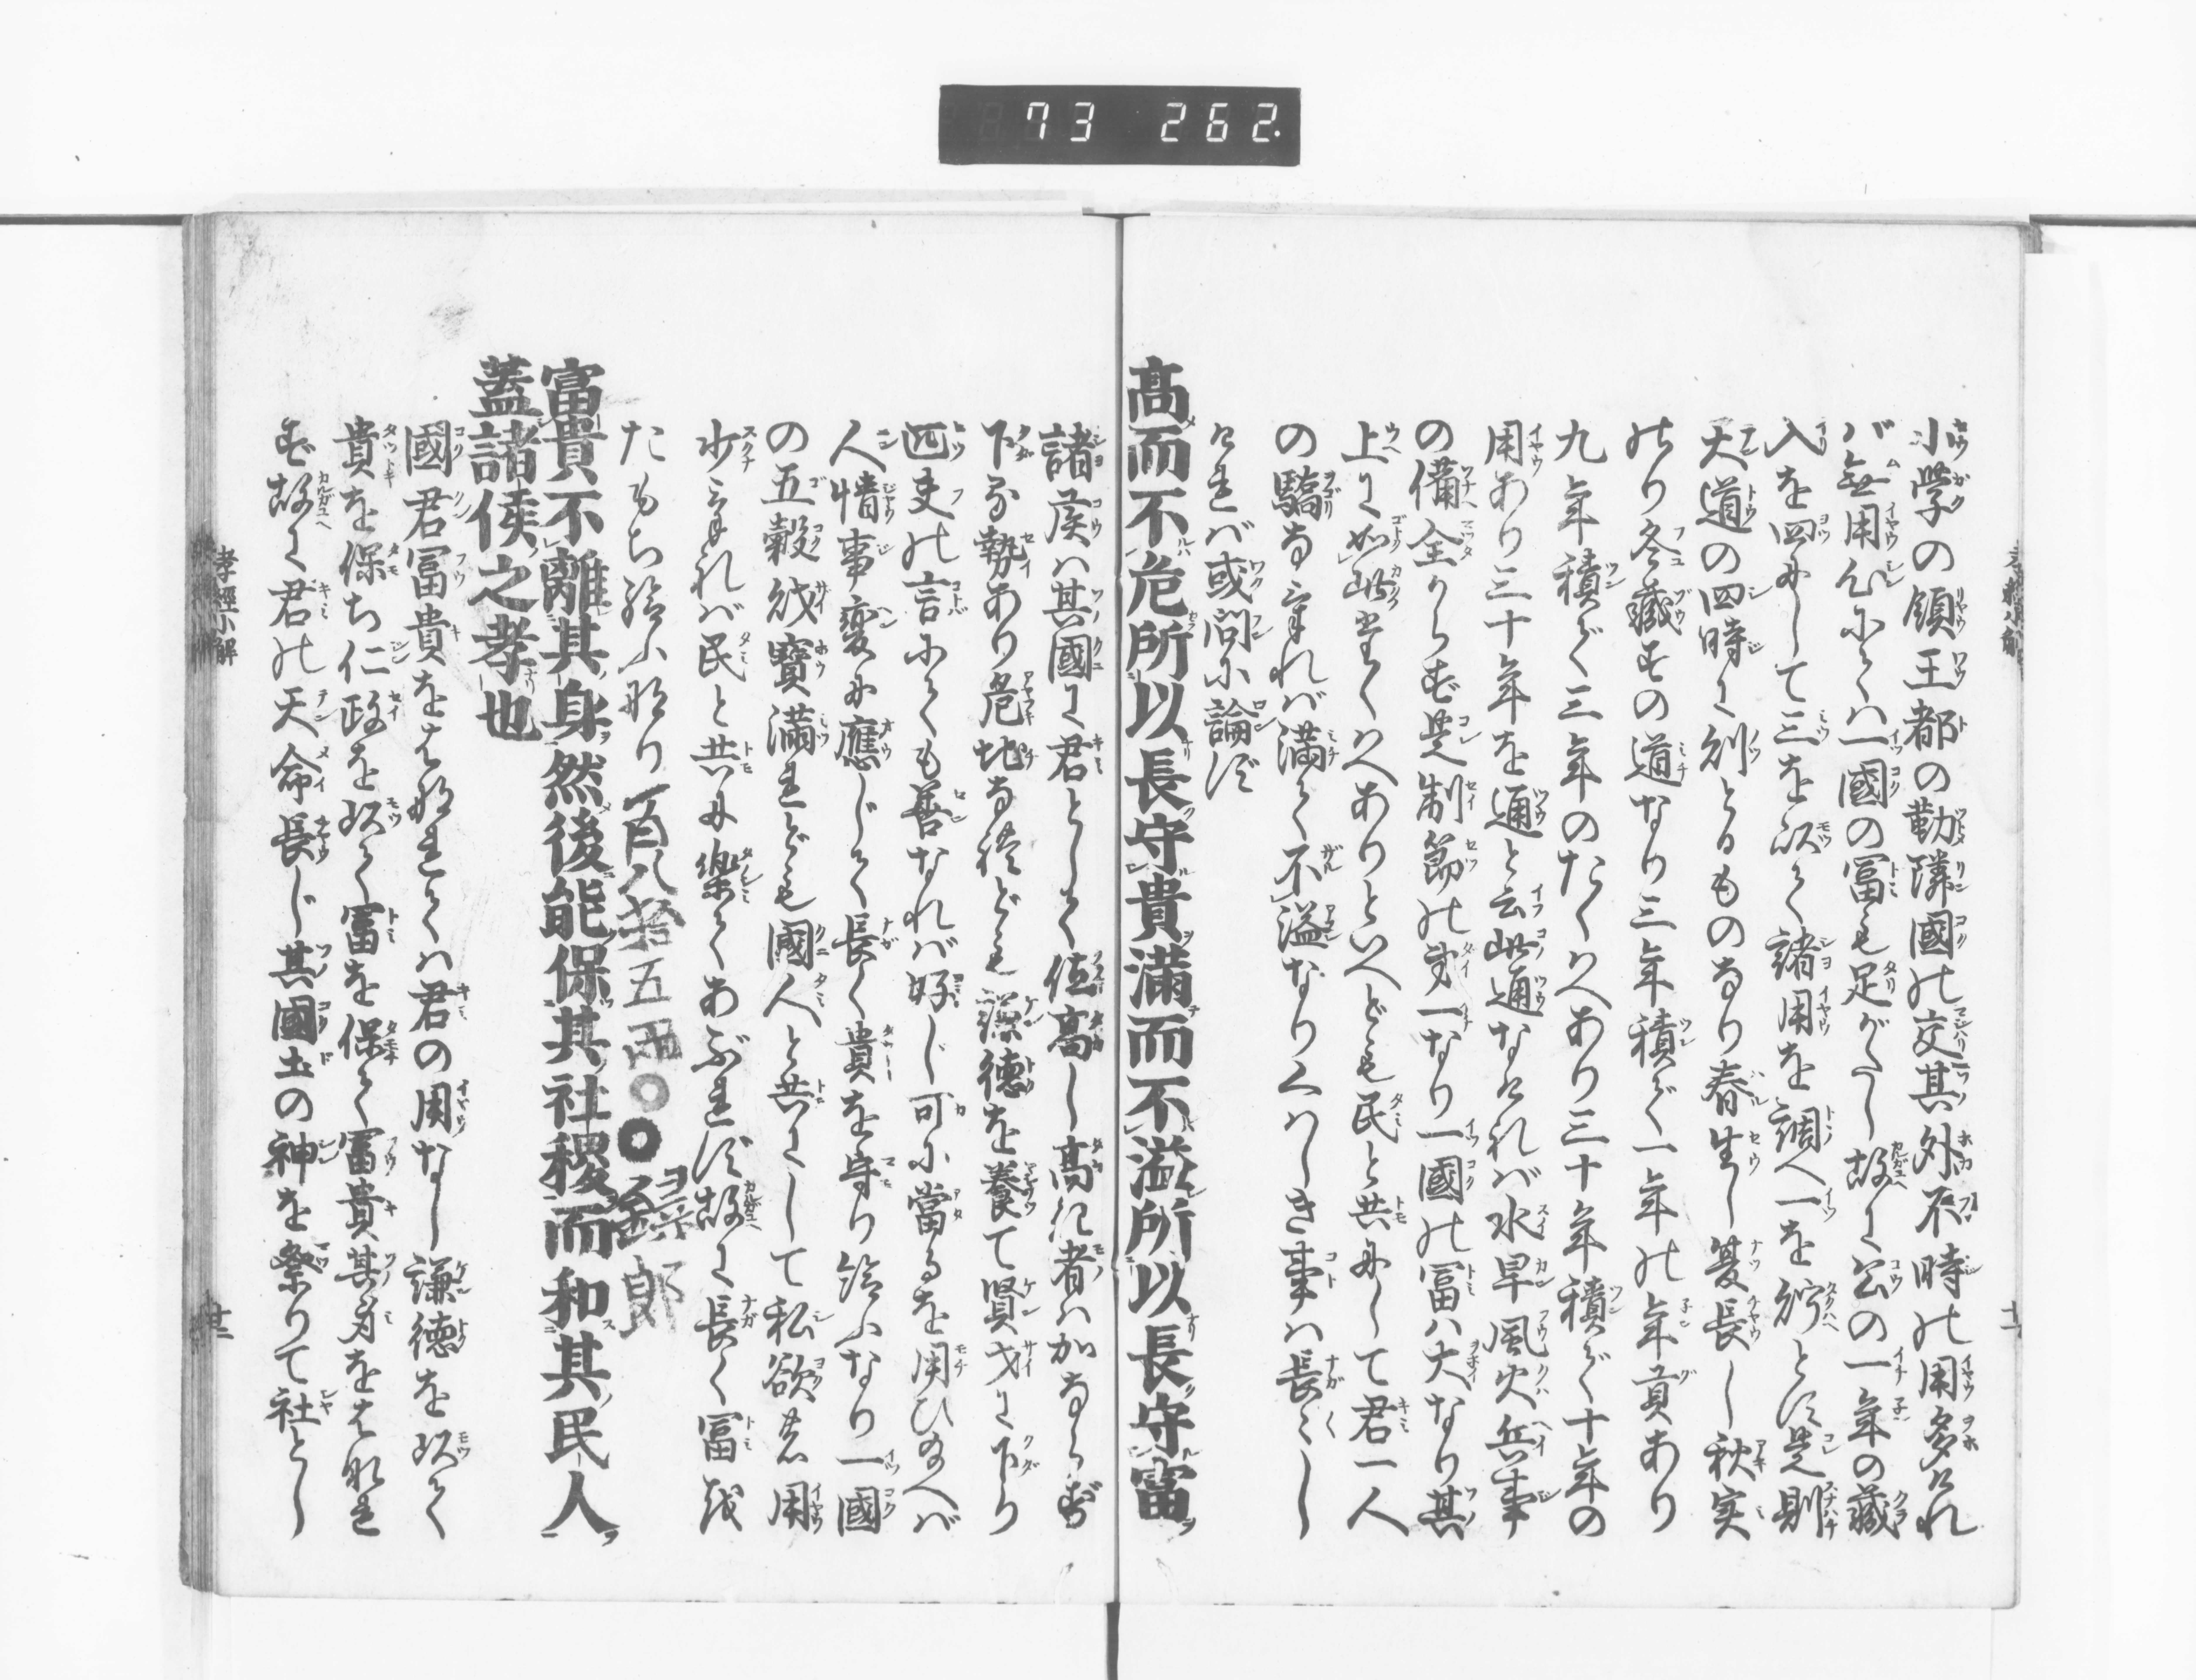 73 262.
小学の領王都の勤隣國の交其外不時の用多けれ
ば無用心にては一國の冨も足がたし故に公の一年の藏
入を四にして三を以て諸用を調へ一を貯とす是則
天道の四時に則とるものなり春生し夏長し秋実
のり冬藏すの道なり三年積で一年の年貢あり
九年積で三年のたくはへあり三十年積で十年の
用あり三十年を通と云此通なければ水旱風火兵事
の備全からず是制節の第一なり一國の冨は大なり其
上に如此たくはへありといへども民と共にして君一人
の驕なければ満て不溢なりくはしき事は長々し
ければ或問に論ず
髙而不危所以長守貴滿而不溢所以長守富
諸侯は其國に君として位高し高き者は加ならず
下な勢あり危地なれども謙徳を養て賢才に下り
匹夫の言にても善なれば好し可に當るを用ひ給へば
人情事變に應じて長く貴を守り給ふなり一國
の五穀財寶満れども國人と共にして私欲の用
少なければ民と共に樂てあぶれず故に長く冨を
たもち給ふなり
富貴不離其身然後能保其社稷而和其民人
蓋諸侯之孝也
國君冨貴をはなれては君の用なし謙徳を以て
貴を保ち仁政を以て冨を保て冨貴其身をはなれ
ず故に君の天命長じ其國土の神を祭りて社とし
孝經小解